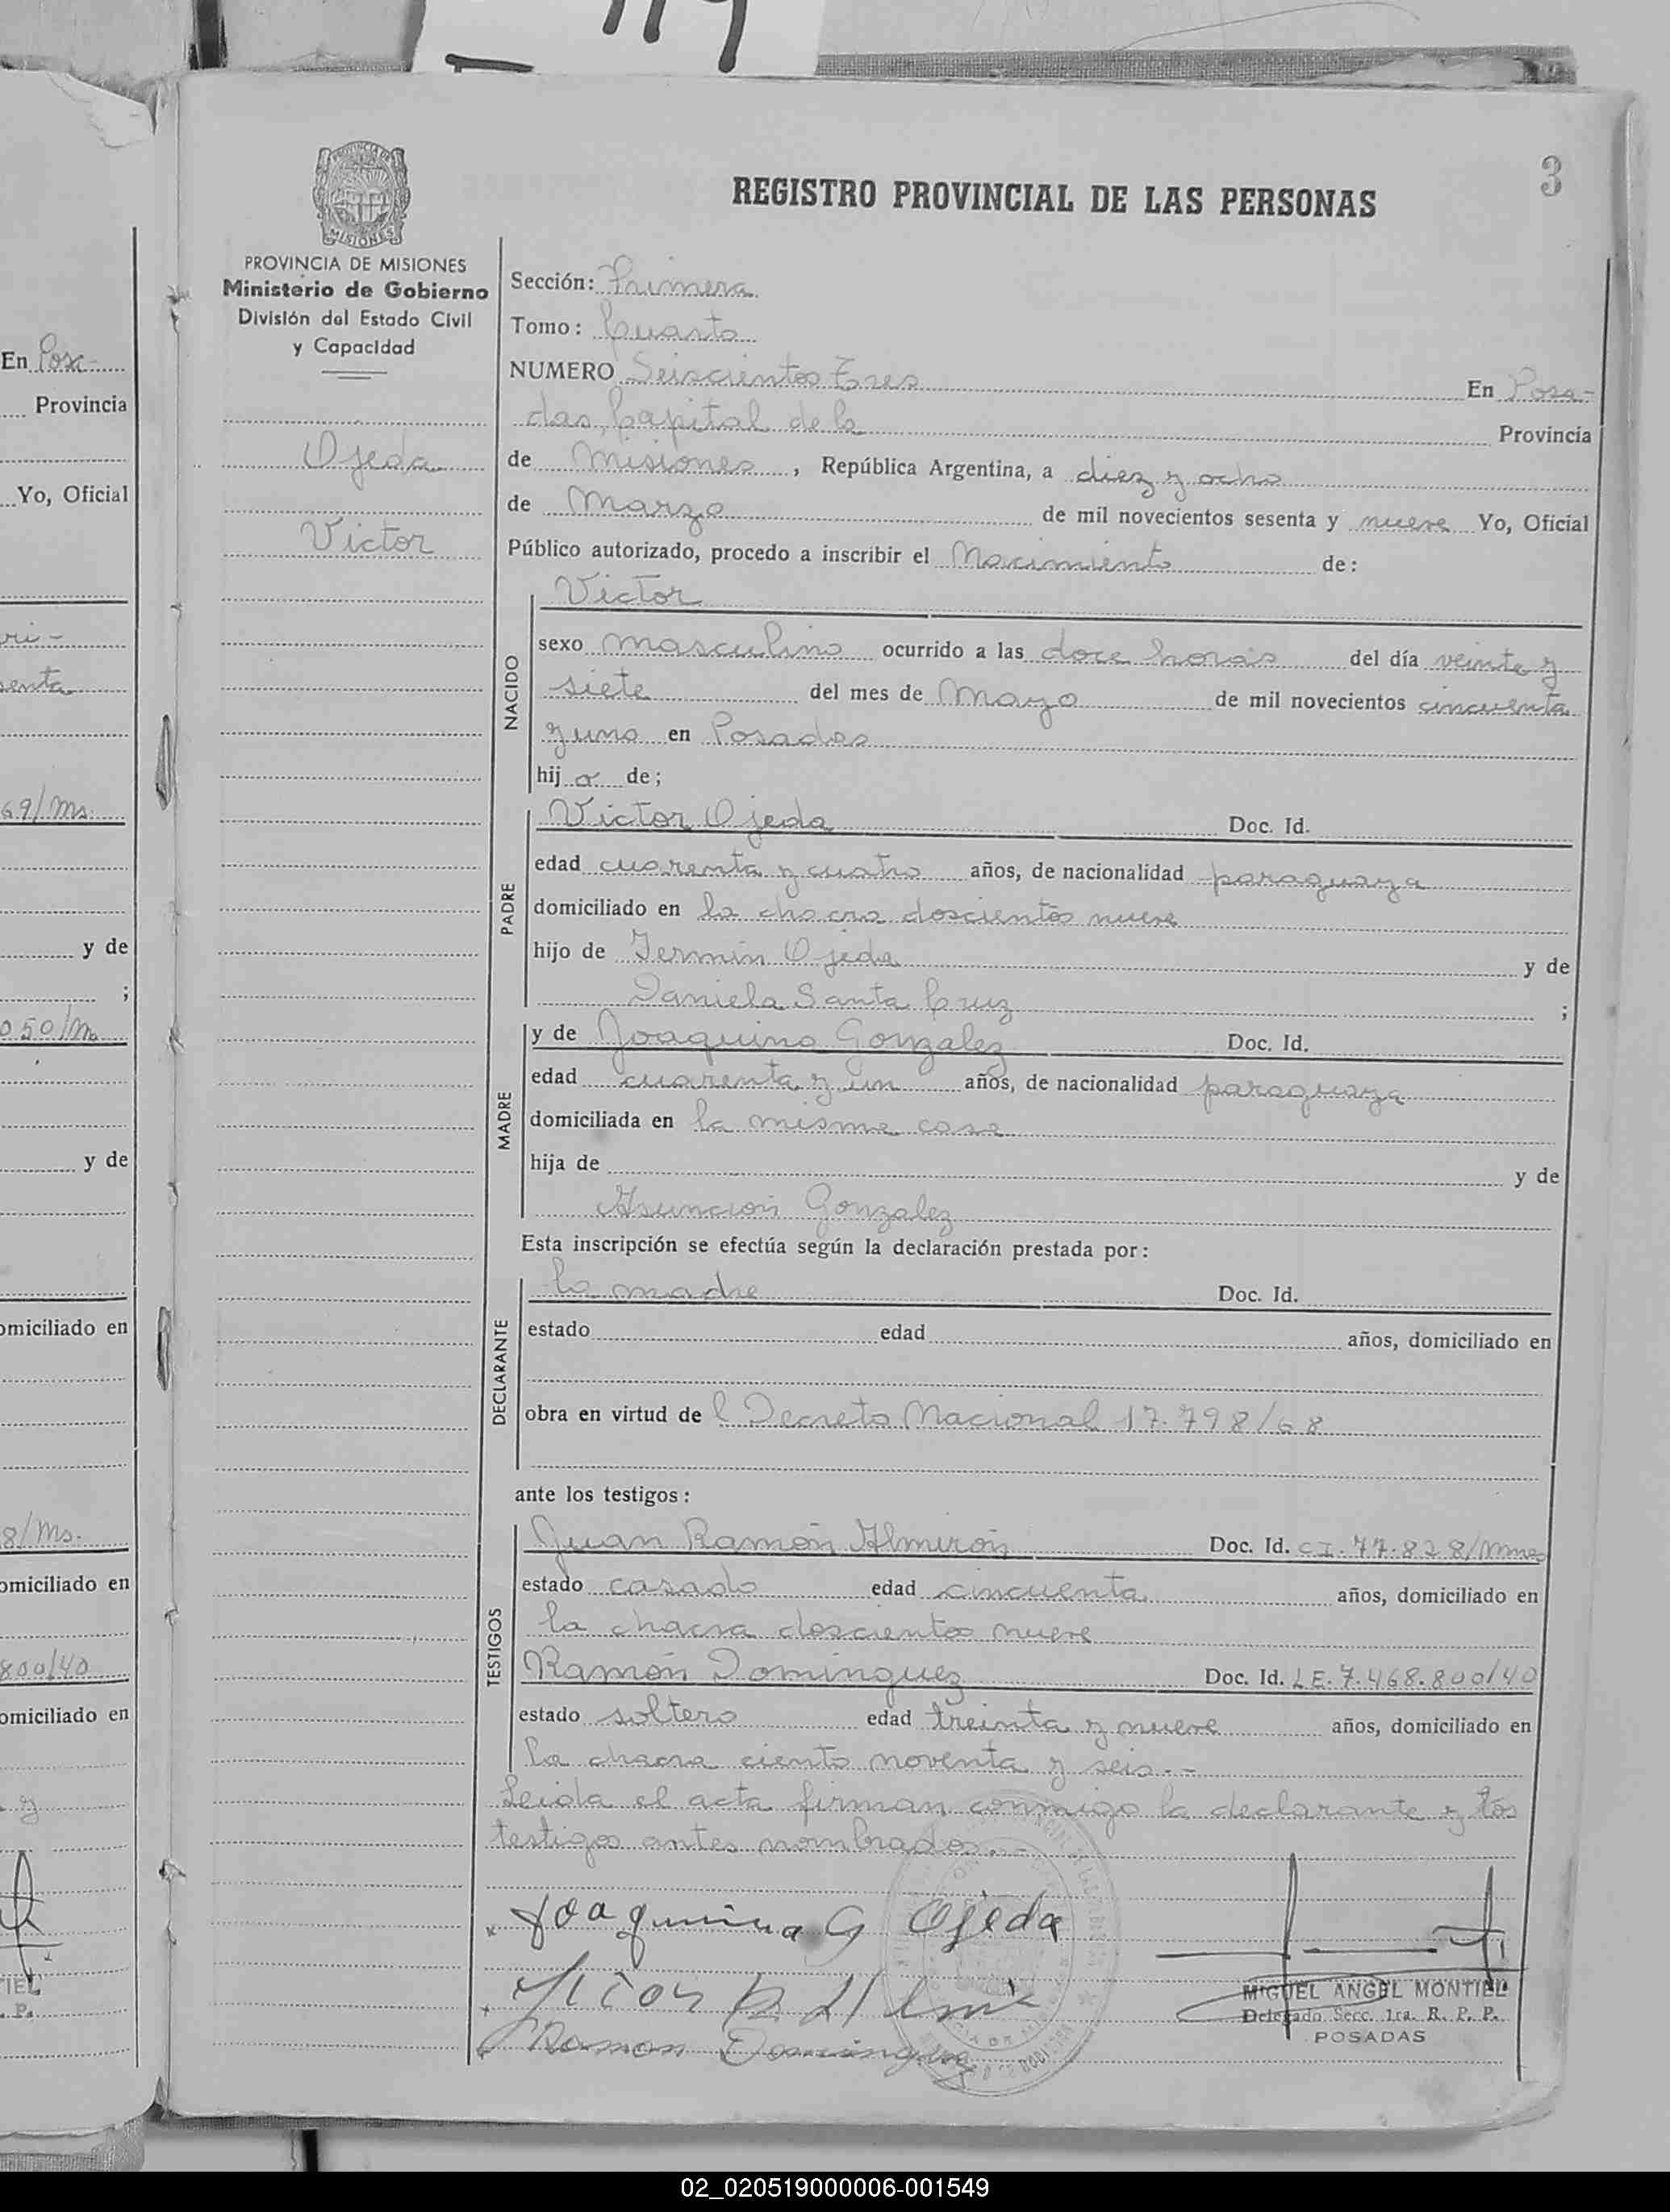 119
3
REGISTRO PROVINCIAL DE LAS PERSONAS
PROVINCIA DE MISIONES
Ministerio de Gobierno
División del Estado Civil
y Capacidad
Ojeda
Victor
Sección: Primera
Tomo: Cuarto
NUMERO Seiscientos Tres En Posa-
das, Capital de la Provincia
de Misiones, República Argentina, a diez y ocho
de Marzo de mil novecientos sesenta y nueve Yo, Oficial
Público autorizado, procedo a inscribir el Nacimiento de:
NACIDO
Victor
sexo masculino ocurrido a las doce horas del día veinte y
siete del mes de Mayo de mil novecientos cincuenta
y uno en Posadas
hijo de;
PADRE
Victor Ojeda Doc. Id.
edad cuarenta y cuatro años, de nacionalidad paraguaya
domiciliado en la chacra doscientos nueve
hijo de Fermín Ojeda y de
Daniela Santa Cruz ;
MADRE
y de Joaquina Gonzalez Doc. Id.
edad cuarenta y un años, de nacionalidad paraguaya
domiciliada en la misma casa
hija de y de
Asunción Gonzalez
Esta inscripción se efectúa según la declaración prestada por:
DECLARANTE
la madre Doc. Id.
estado edad años, domiciliado en
obra en virtud de l Decreto Nacional 17.798/68
ante los testigos:
TESTIGOS
Juan Ramón Almirón Doc. Id. C.I. 77.828/Mnes
estado casado edad cincuenta años, domiciliado en
la chacra doscientos nueve
Ramón Dominguez Doc. Id. L.E. 7.468.800/40
estado soltero edad treinta y nueve años, domiciliado en
la chacra ciento noventa y seis.-
Leida el acta firman conmigo la declarante y los
testigos antes nombrados.-
Joaquina G Ojeda
Ramon Dominguez
MIGUEL ANGEL MONTIEL
Delegado Secc. 1ra. R. P. P.
POSADAS
En Posa-
Provincia
Yo, Oficial
69/Ms.
y de
;
050/M
y de
omiciliado en
8/Ms.
omiciliado en
800/40
omiciliado en
y
TIEL
P.
02_020519000006-001549